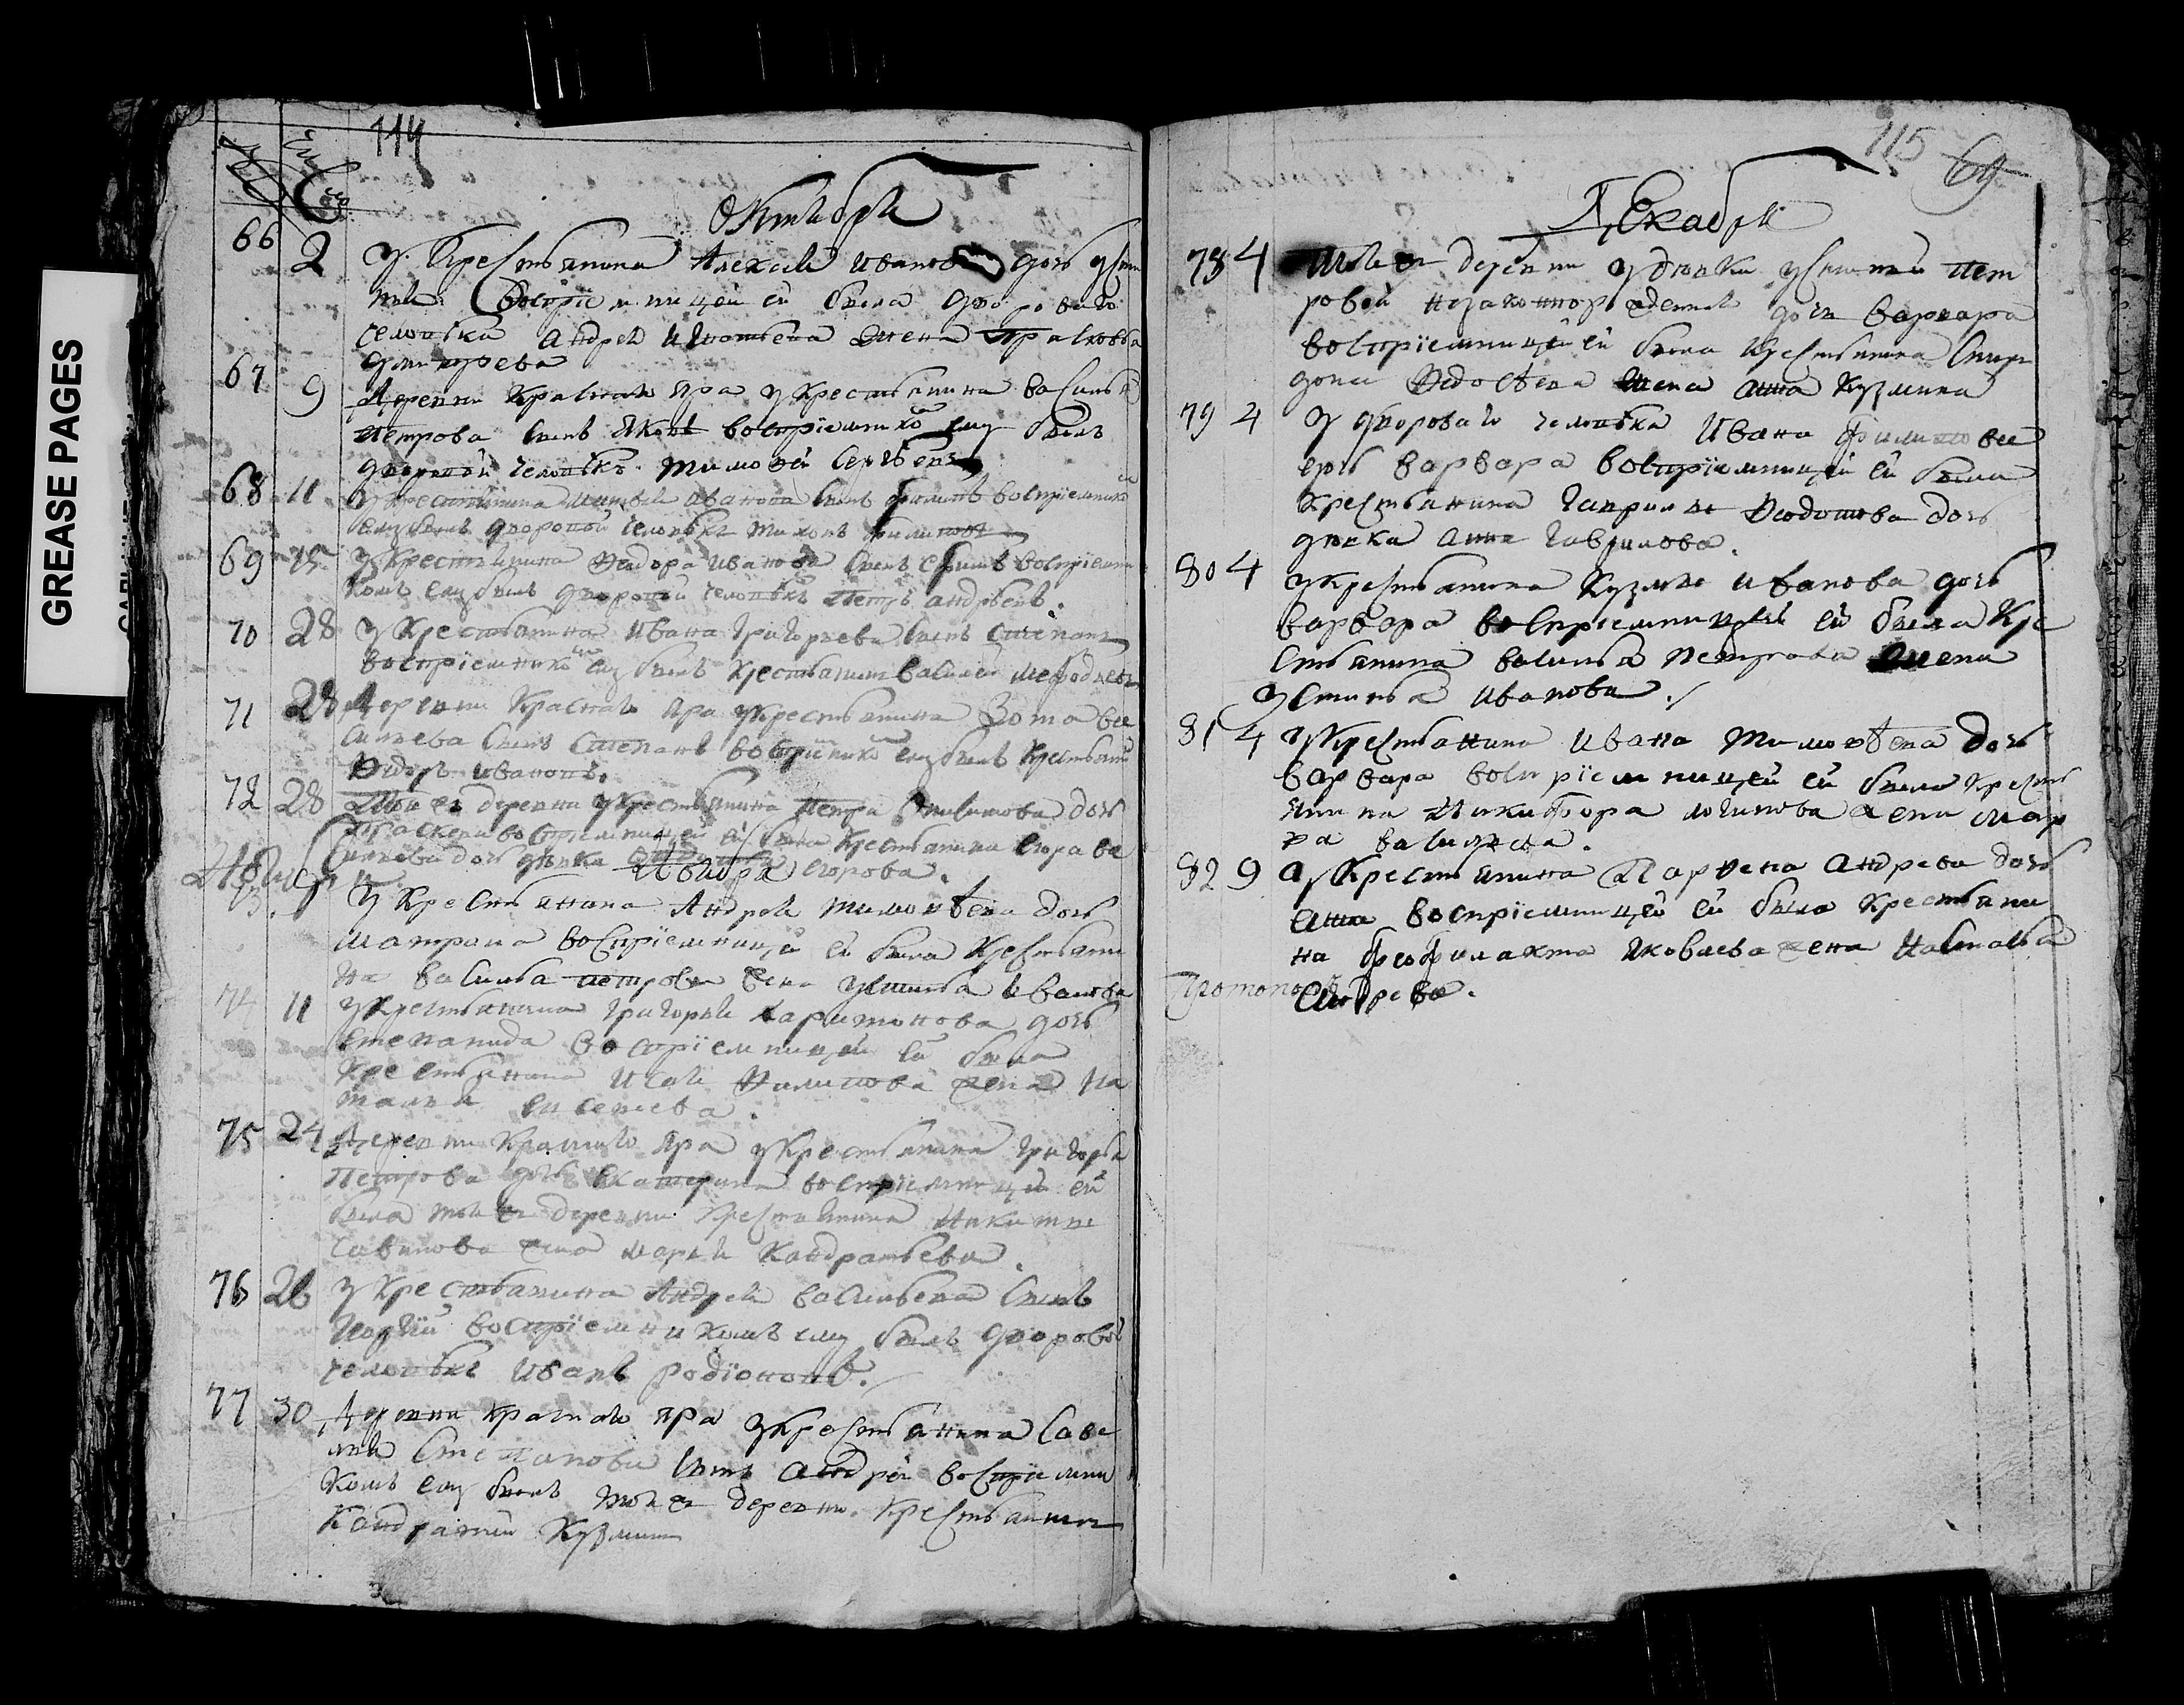 GREASE PAGES
114
Октября
66 2 У Крестьянина Алексея Иванова дочь Усти
восприемницей ей была дворового
человека Андрея Игнатьева жена Прасковья
Дмитрева
67 9 Деревни Краснаго Яра у крестьянина Василья
Петрова сынъ Яковъ восприемникомъ ему былъ
дворовой человѣкъ Тимофей Сергѣевъ
68 11 У крестьянина Иванова сынъ Филипъ восприемникомъ
ему былъ дворовой человѣкъ Филипов
69 15 У крестьянина Федора Иванова сынъ восприемни
комъ ему былъ дворовой человѣкъ Петръ Андрѣевъ.
70 28 У крестьянина Ивана Григорьева сынъ Степанъ
восприемникомъ ему былъ крестьянинъ Василей
71 28 Деревни Краснаго Яра у крестьянина Зота Ва
сильева сынъ Степанъ восприемникомъ ему былъ крестьянинъ
Федоръ Ивановъ.
72 28 Той ж деревни у крестьянина Петра дочь
Праскева восприемницей ей была крестьянина Егора Ва
сильева дочь девка Егорова.
73 У крестьянина Андрея Тимофѣева дочь
Матрона восприемницей ей была крестьяни
на Василья Петрова жена Устинья Иванова
74 11 У крестьянина Григорья Харитонова дочь
Степанида восприемницей ей была
крестьянина Исая Филипова жена На
талья Елисеева.
75 24 Деревни Краснаго Яра у крестьянина Григорья
Петрова дочь Екатерина восприемницей ей
была той ж деревни крестьянина Никиты
Савинова жена Марья Кандратьева.
76 26 У крестьянина Андрея Васильева сынъ
восприемникомъ ему былъ дворовой
человѣкъ Иванъ Родïоновъ.
77 30 Деревни Краснаго Яра у крестьянина Саве
лья Степанова сынъ Андрей восприемни
комъ ему былъ той ж деревни крестьянинъ
Кандратей Кузминъ
115 69
Декабря
78 4 Той ж деревни у девки Устиньи Пет
ровой незаконнорожденная дочь Варвара
восприемницей ей была крестьянина Спири
дона Федосеева жена Анна Кузмина
79 4 У дворового человѣка Ивана Филипова
дочь Варвара восприемницей ей была
крестьянина Гаврилы Федотова дочь
девка Анна Гаврилова.
80 4 У крестьянина Кузмы Иванова дочь
Варвара восприемницей ей была кре
стьянина Василья Петрова жена
Устинья Иванова.
81 4 У крестьянина Ивана Тимофѣева дочь
Варвара восприемницей ей была кресть
янина Никифора Логинова жена Мар
фа Васильева.
82 9 У крестьянина Парфена Андрева дочь
Анна восприемницей ей была крестьяни
на Феофилакта Яковлева жена Настасья
Андрева.
Протопопъ